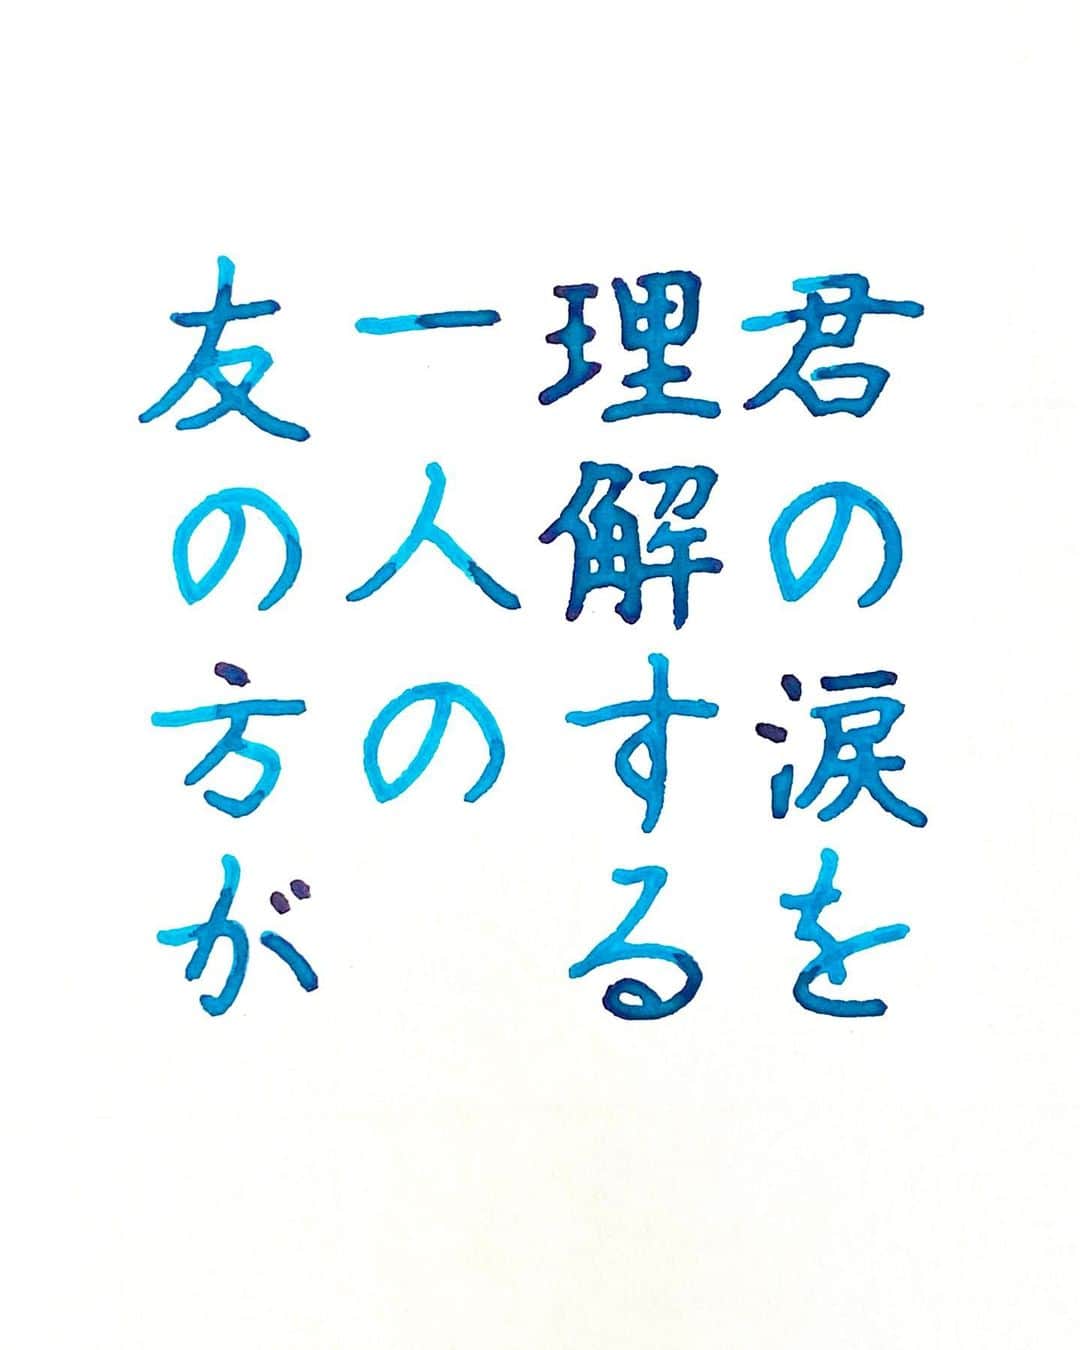 君の涙を
理解する
一人の
友の方が